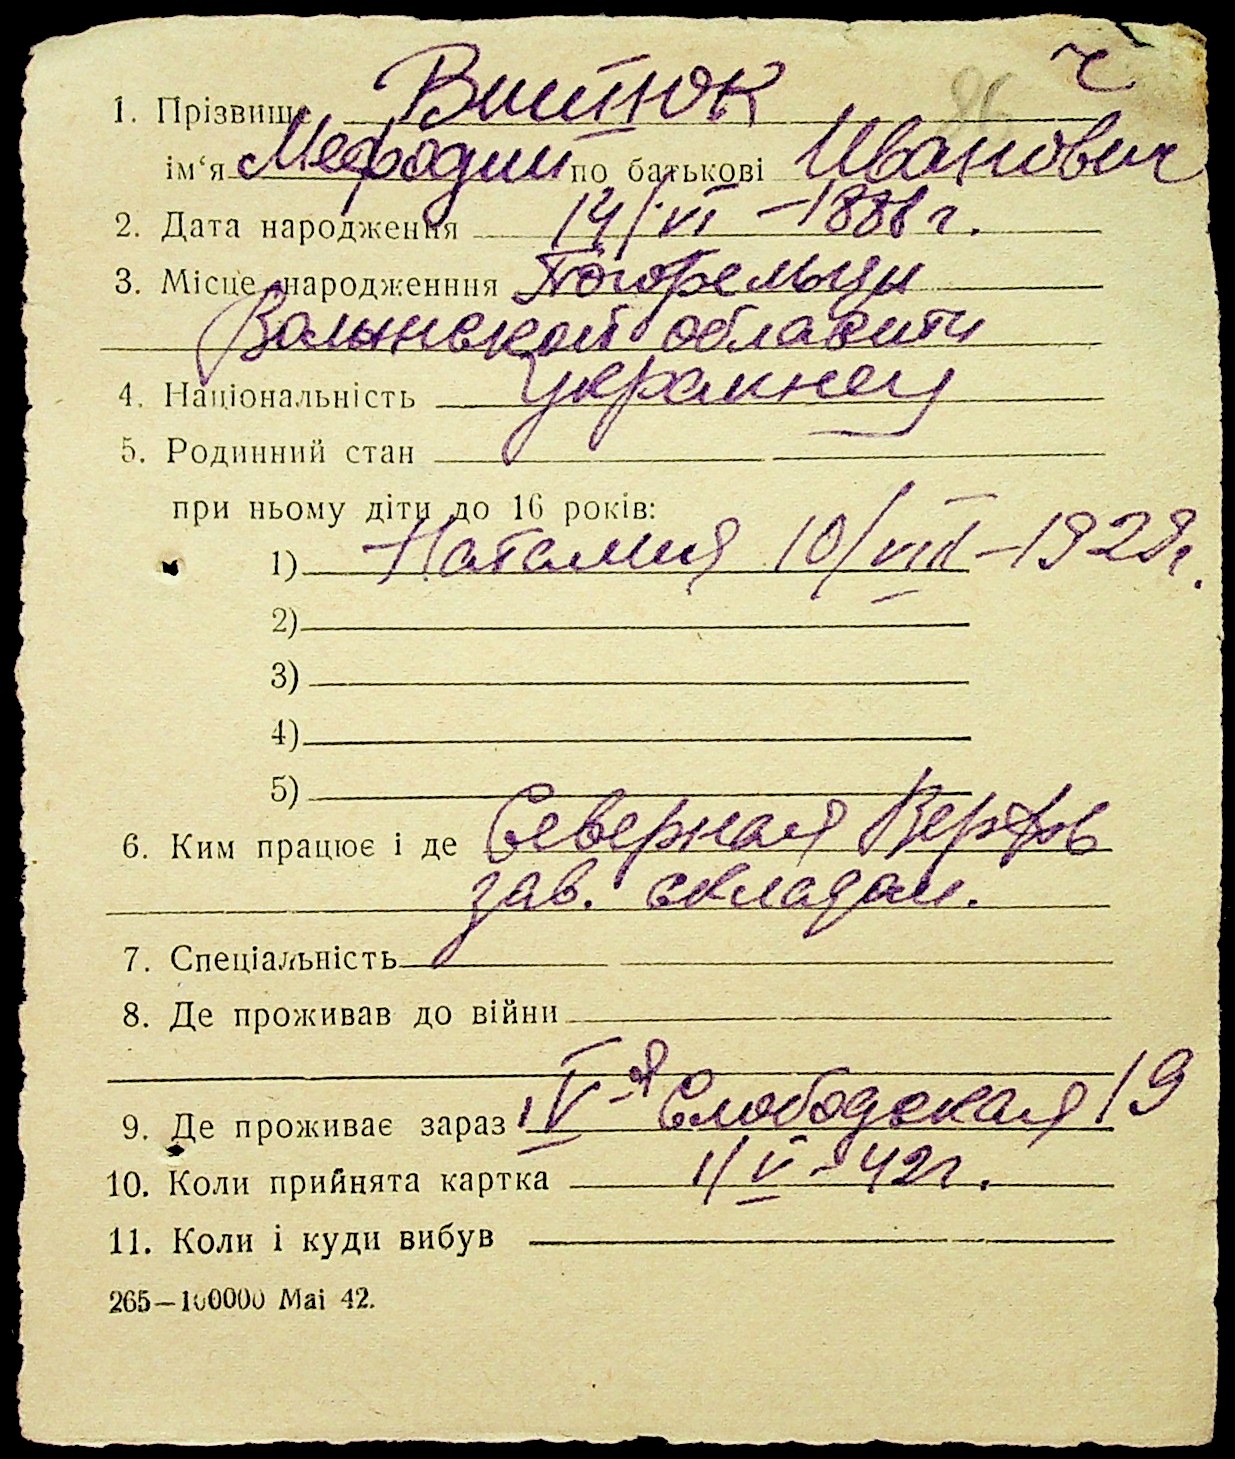 ч
86
1. Прізвище Витюк
ім‘я Мефодий по батькові Иванович
2. Дата народження 14/VI - 1888 г.
3. Місце народженння Погорельцы
Волынской области
4. Національність украинец
5. Родинний стан
при ньому діти до 16 років:
1) Наталия 10/VIII - 1928 г.
2)
3)
4)
5)
6. Ким працює і де Северная Верфь
зав. складом.
7. Спеціальність
8. Де проживав до війни
9. Де проживає зараз IV-я Слободская 19
10. Коли прийнята картка 1/V - 42 г.
11. Коли і куди вибув
265—100000 Mai 42.